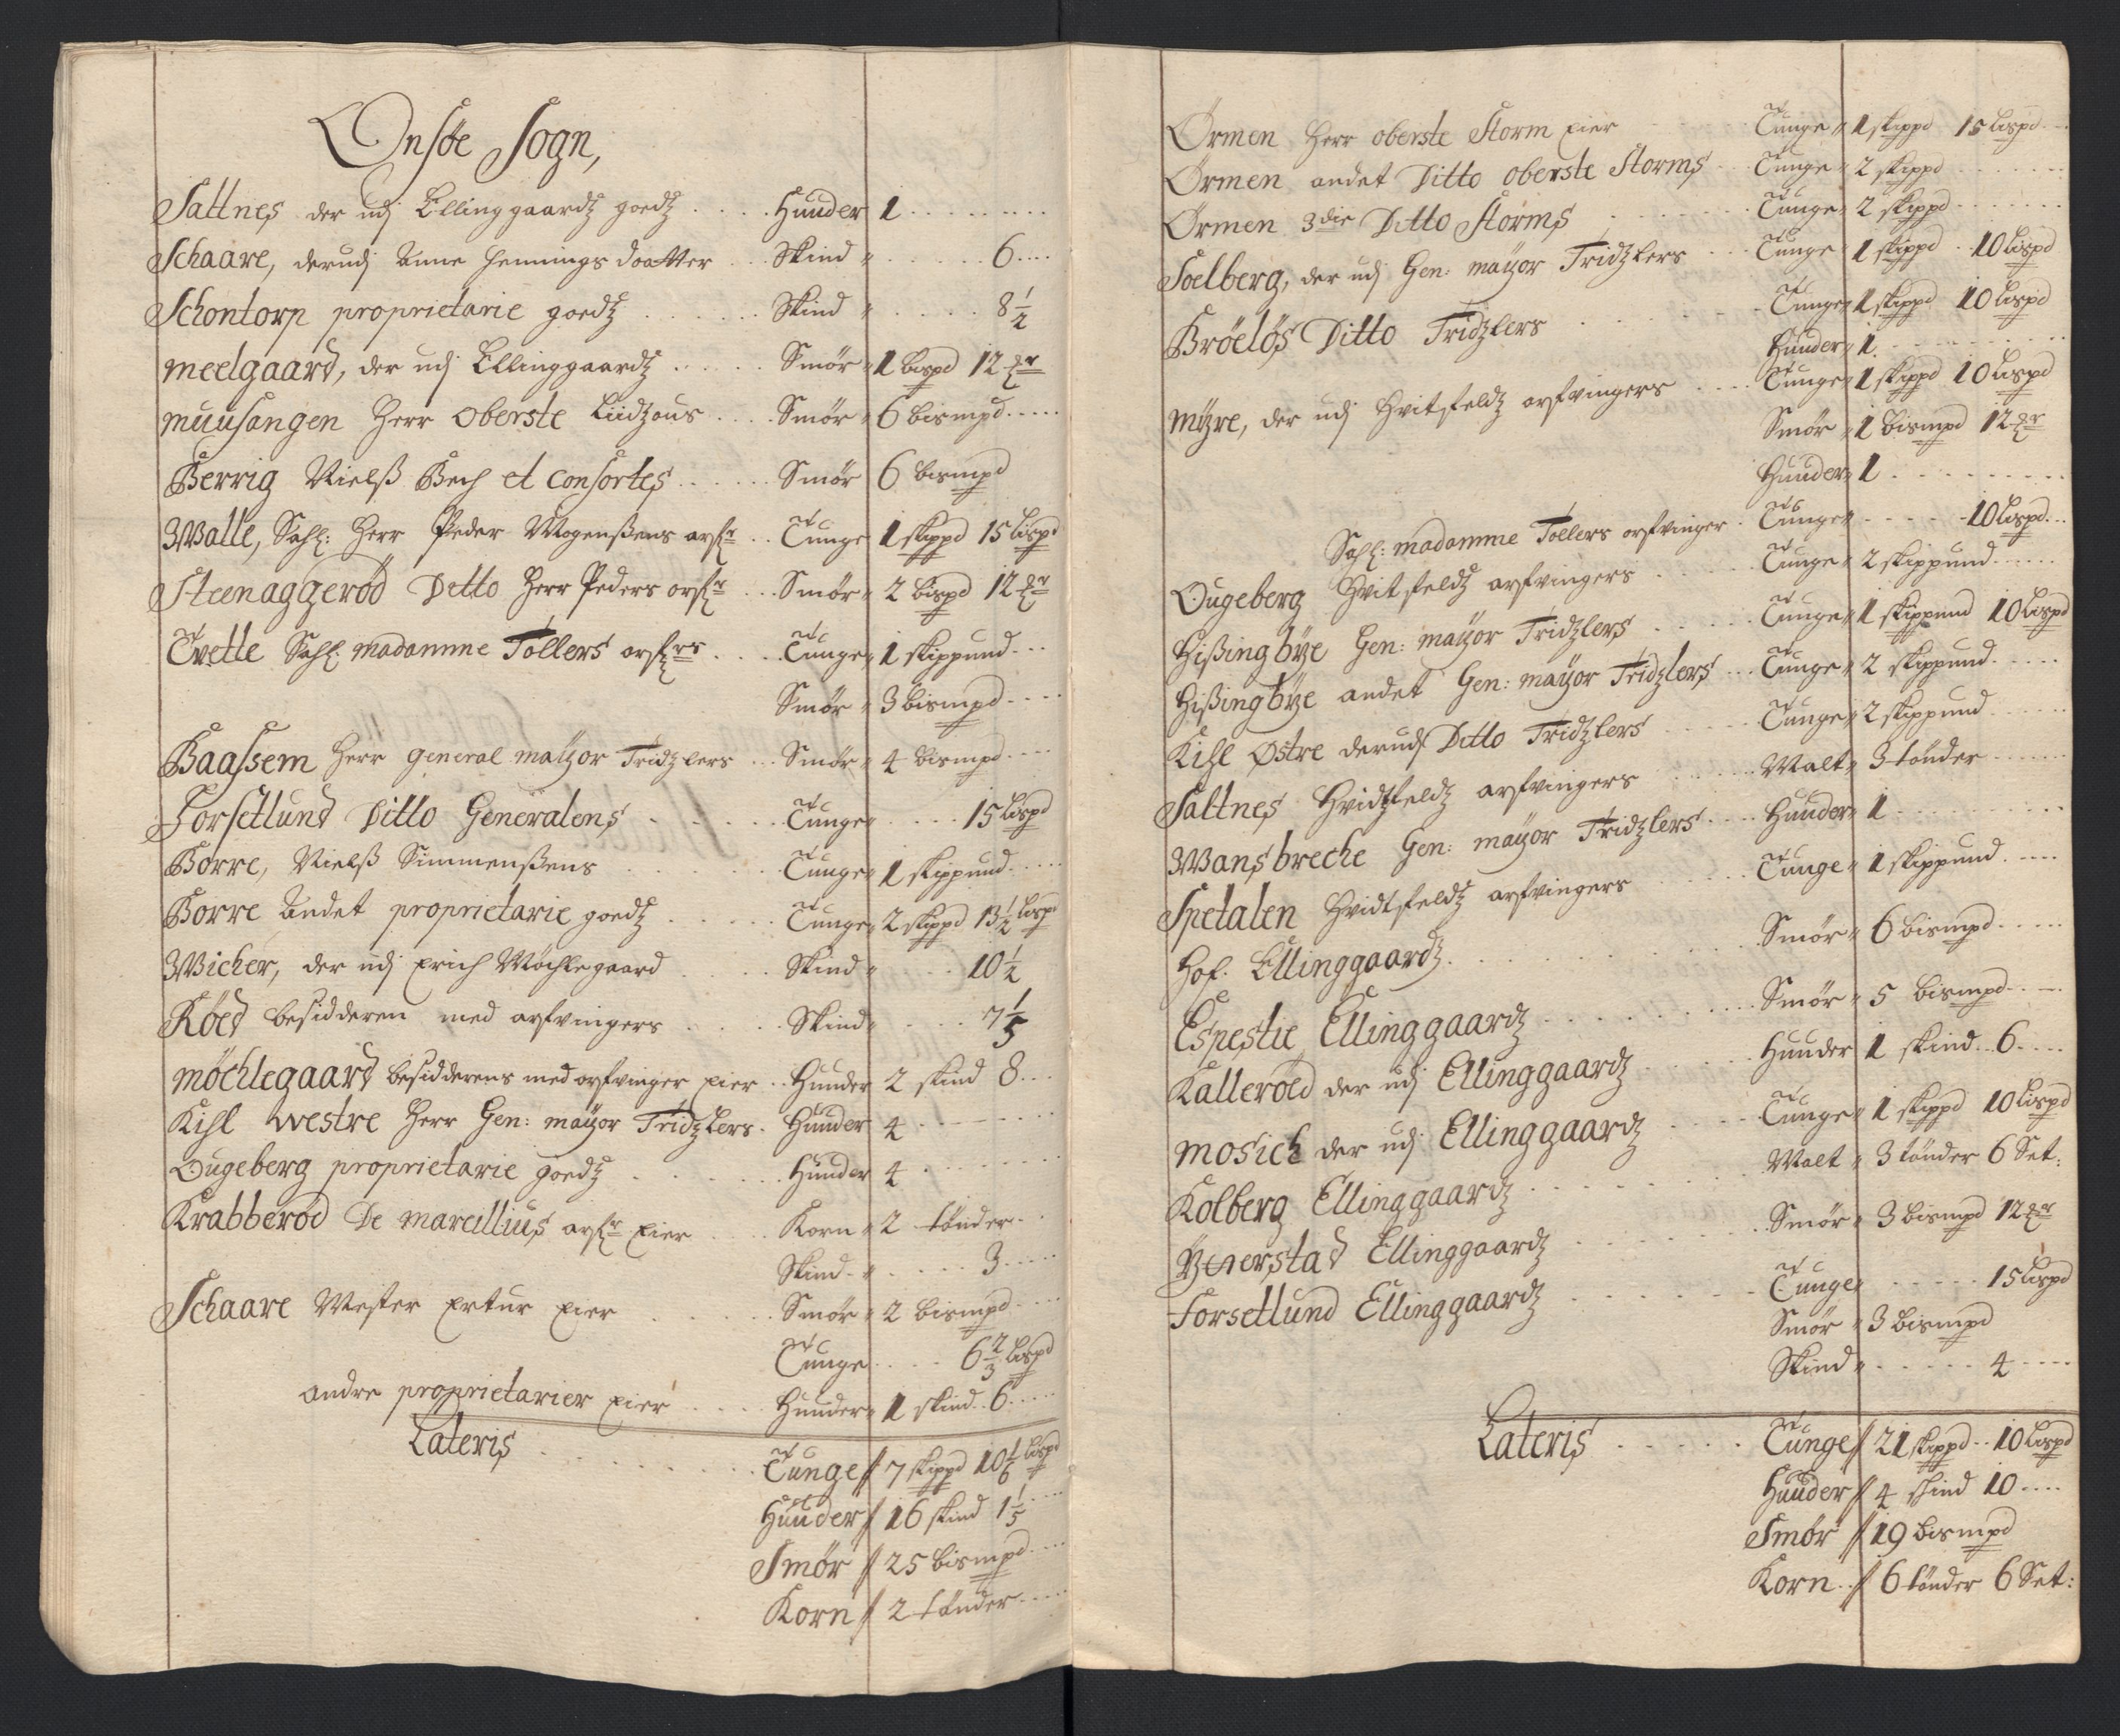 Onsöe Sogn,
Saltnes der udj Ellinggaardtz goedtz Huuder 1
Schaare, derudj Anne Hennings daatter Skind " 6
Schontorp proprietarie goedtz Skind " 8 1/2
meelgaard, der udj Ellinggaardtz Smør " 1 bispd 12 mr
muusangen Herr Oberste Lüdzous Smør " 6 bismpd
Berrig Nielß Bech et Consortes Smør 6 bismpd
Walle, Sahl: Herr Peder Mogenßens arfr Tunge 1 skippd 15 Lispd
Steenaggeröd Ditto Herr Peders arfr Smør " 2 bispd 12 mr
Tvette Sahl. madamme Tollers arfrs Tunge " 1 skippund
Smør " 3 bismpd
Baassem Herr general maÿor Tridzlers Smør " 4 bismpd
Forsetlund Ditto Generalens Tunge " 15 Lispd
Borre, Nielß Simmenßens Tunge " 1 skippund
Borre Andet proprietarie goedtz Tunge " 2 skippd 13 1/2 Lispd
Wicher, der udj Erich Möchlegaard Skind " 10 1/2
Röed besidderen med arfvingers Skind " 7 1/5
möchlegaard besidderens med arfvinger Eier Huuder 2 skind 8
Kihl westre Herr Gen: maÿor Tridzlers Huuder 4
Ougeberg proprietarie goedtz Huuder 4
Krabberöd De marcillius arfr Eier Korn " 2 tönder
Skind " 3
Schaare Wester Ertur Eier Smør " 2 bismpd
Tunge 6 2/3 Lispd
andre proprietarier Eier Huuder " 1 skind 6
Lateris Tunge // 7 skippd 10 1/6 Lispd
Huuder // 16 skind 1 1/5
Smør // 25 bismpd
Korn // 2 tönder
Örmen Herr oberste Storm Eier Tunge " 1 skippd 15 Lispd
Örmen andet Ditto oberste Storms Tunge " 2 skippd
Örmen 3die Ditto Storms Tunge " 2 skippd
Soelberg, der udj Gen: maÿor Tridzlers Tunge " 1 skippd 10 Lispd
Bröelös Ditto Tridzlers Tunge " 1 skippd 10 Lispd
Huuder " 1
Mÿre, der udj Hvitfeldtz arfvingers Tunge " 1 skippd 10 Lispd
Smør " 1 bismpd 12 mr
Huuder " 1
Sahl: madamme Tollers arfvinger Tunge " 10 Lispd
Ougeberg Hvitfeldtz arfvingers Tunge " 2 skippund
Hißingbÿe Gen: maÿor Tridzlers Tunge " 1 skippund 10 Lispd
Hißingbÿe andet Gen: maÿor Tridzlers Tunge " 2 skippund
Kihl Østre derudj Ditto Tridzlers Tunge " 2 skippund
Saltnes Hvidtfeldtz arfvingers Malt " 3 tönder
Wansbreche Gen: maÿor Tridzlers Huuder " 1
Spetalen Hvidtfeldtz arfvingers Tunge " 1 skippund
Hof. Ellinggaardtz Smør " 6 bismpd
Espestie Ellinggaardtz Smør " 5 bismpd
Kalleröed der udj Ellinggaardtz Huuder 1 skind 6
Mosich der udj Ellinggaardtz Tunge " 1 skippd 10 Lispd
Kolberg Ellinggaardtz Malt " 3 tönder 6 Set:
Ÿnerstad Ellinggaardtz Smør " 3 bismpd 12 mr
Forsetlund Ellinggaardtz Tunge " 15 Lispd
Smør " 3 bismpd
Skind " 4
Lateris Tunge // 21 skippd 10 Lispd
Huuder // 4 skind 10
Smør // 19 bismpd
Korn // 6 tönder 6 Set: